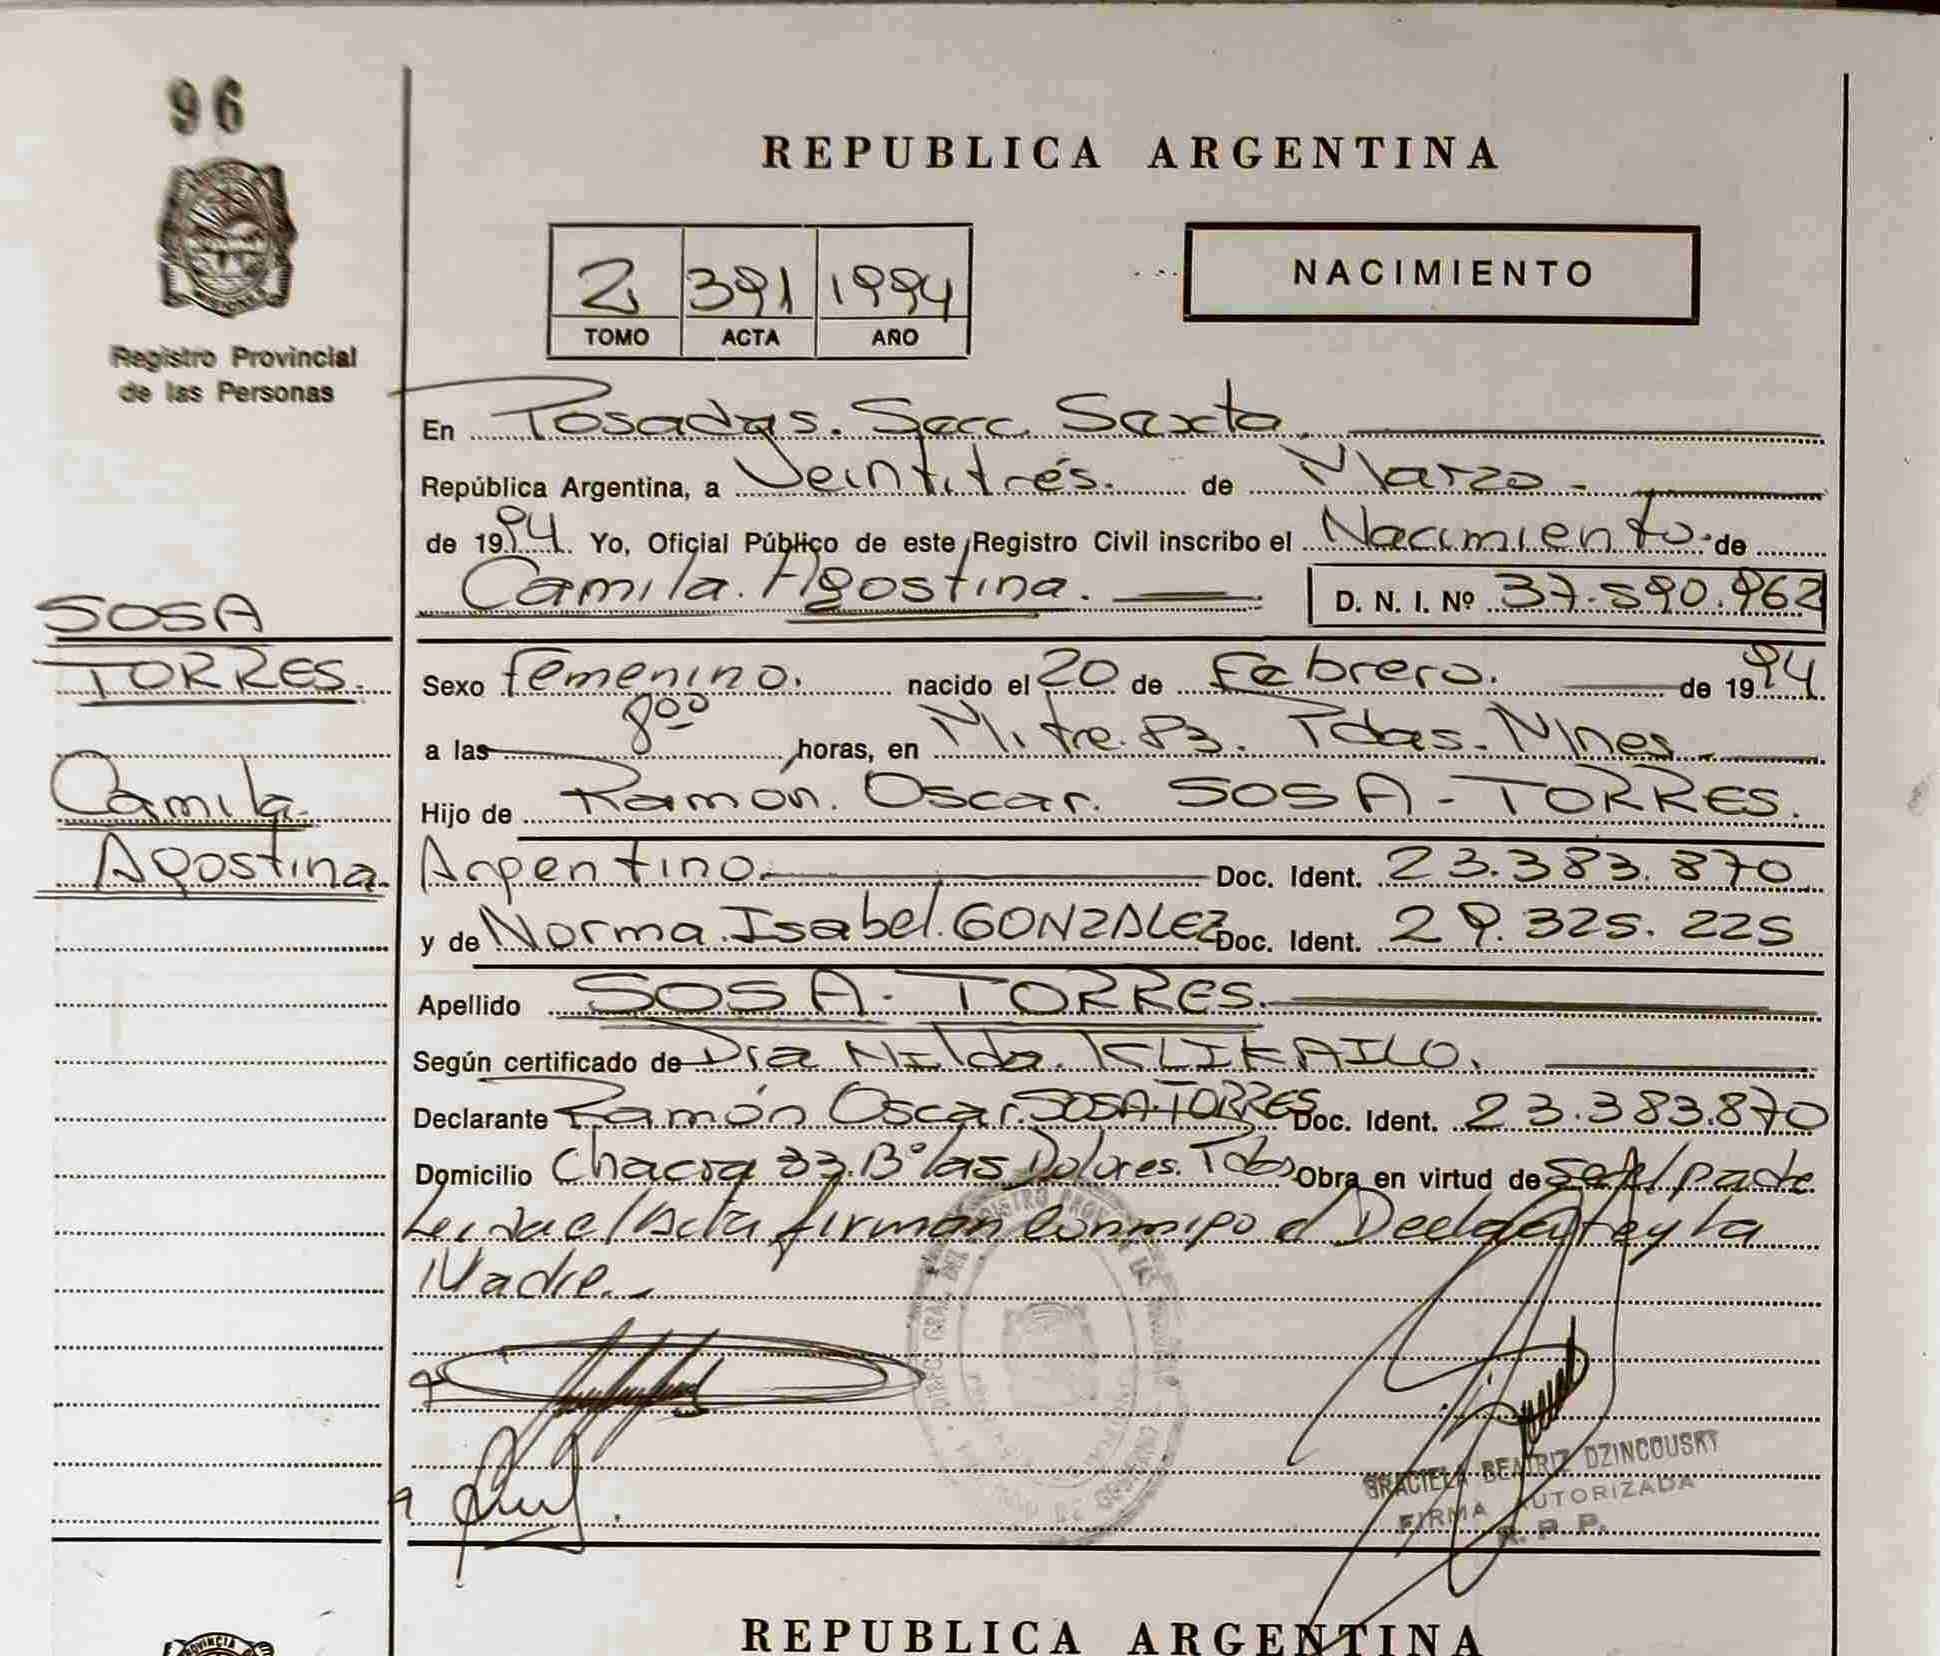 96
Registro Provincial
de las Personas
SOSA
TORRES.
Camila.
Agostina.
REPUBLICA ARGENTINA
2 391 1994
TOMO ACTA AÑO
NACIMIENTO
En Posadas. Secc. Sexta.
República Argentina, a Veintitrés. de Marzo.
de 1994. Yo, Oficial Público de este Registro Civil inscribo el Nacimiento. de
Camila. Agostina. D. N. I. Nº 37.590.962
Sexo femenino. nacido el 20 de Febrero. de 1994
a las 8⁰⁰ horas, en Mitre. 83. Pdas. Mnes.
Hijo de Ramón. Oscar. SOSA - TORRES.
Argentino. Doc. Ident. 23.383.870
y de Norma. Isabel. GONZALEZ Doc. Ident. 29.325.225
Apellido SOSA - TORRES.
Según certificado de Dra Nilda. KLIKAILO.
Declarante Ramón Oscar. SOSA-TORRES Doc. Ident. 23.383.870
Domicilio Chacra 33. B° las Dolores. Obra en virtud de ser el padre
Leída el Acta firman conmigo el Declarante y la
Madre.
GRACIELA BEATRIZ DZINCOUSKY
FIRMA AUTORIZADA
R. P. P.
REPUBLICA ARGENTINA
PROVINCIA